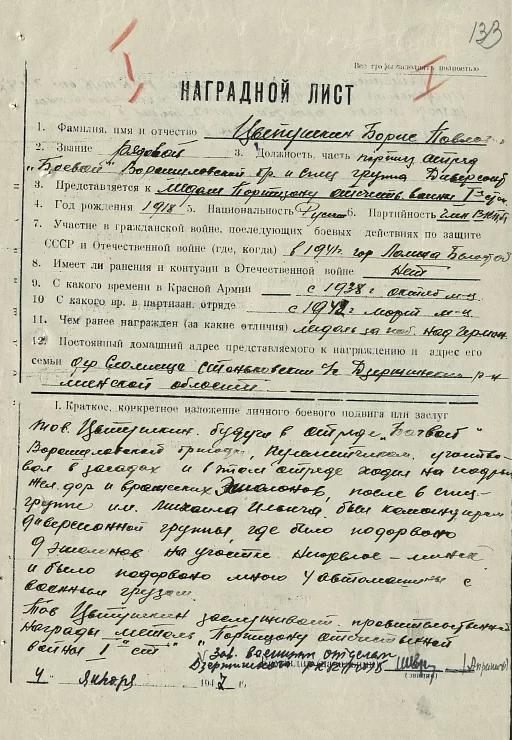 133
Все графы заполнять полностью
I
НАГРАДНОЙ ЛИСТ
1. Фамилия, имя и отчество Цветушкин Борис
2. Звание рядовой 3. Должность, часть партиз. отряд
"Боевой" Ворошиловской бр. и спец группа
3. Представляется к медали Партизану отечеств. войны I
4. Год рождения 1918 5. Национальность 6. Партийность член
7. Участие в гражданской войне, последующих боевых действиях по защите
СССР и Отечественной войне (где, когда) в 1941 г. гор
8. Имеет ли ранения и контузии в Отечественной войне нет
9. С какого времени в Красной Армии с 1938 г. м-ц
10 С какого вр. в партизан. отряде с 1942 г. март м-ц
11. Чем ранее награжден (за какие отличия) медаль за поб. над Герман.
12. Постоянный домашний адрес представляемого к награждению и адрес его
семьи дер Станьковский с/с Дзержинский р-н
минской области
I. Краткое, конкретное изложение личного боевого подвига или заслуг
Тов. Цветушкин будучи в отряде "Боевой"
Ворошиловской бригады, участво-
вал в засадах и в этом отряде ходил на подрыв
жел. дор и вражеских эшелонов, после в спец-
группе им. был командиром
диверсионной группы, где было подорвано
9 эшелонов на участке минск
и было подорвано много автомашины с
военным грузом.
Тов Цветушкин заслуживает правительственной
награды медаль "Партизану отечественной
войны I ст"
Зав. военным отделом
Дзержинского РК КП(б)Б
(звание)
4 января 1947 г.